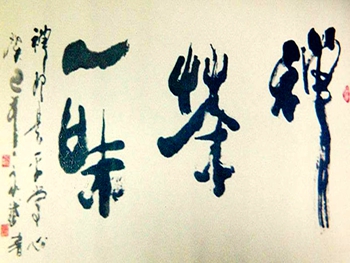 禅
茶
一味
禅即是平常心